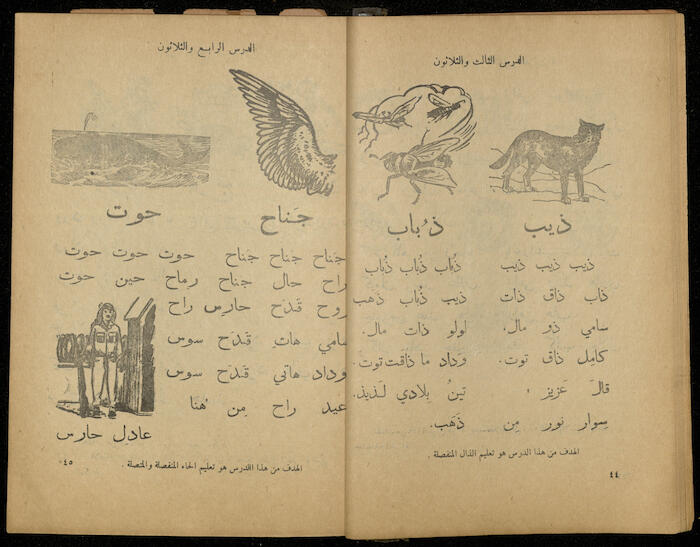 الدرس الثالث والثلاثون
ذيب ذُباب
ذيب ذيب ذيب ذُباب ذُباب ذُباب
ذاب ذاق ذات ذيب ذُباب ذهب
سامي ذو مال. لولو ذات مال.
كامِل ذاق توت. وَداد ما ذاقَت توت.
قالَ عَزيز : تينُ بِلادي لَذيذ.
سِوار نور مِن ذَهَب.
الهدف من هذا الدرس هو تعليم الذال المنفصلة .
٤٤
الدرس الرابع والثلاثون
جَناح حوت
جناح جناح جَناح حوت حوت حوت
راح حال جناح رماح حين حوت
روح قَدَح حارِس راح
سامي هاتِ قَدَح سوس
وداد هاتي قَدَح سوس
عَيد راح مِن هُنا
عادل حارس
الهدف من هذا الدرس هو تعليم الحاء المنفصلة والمتصلة .
٤٥